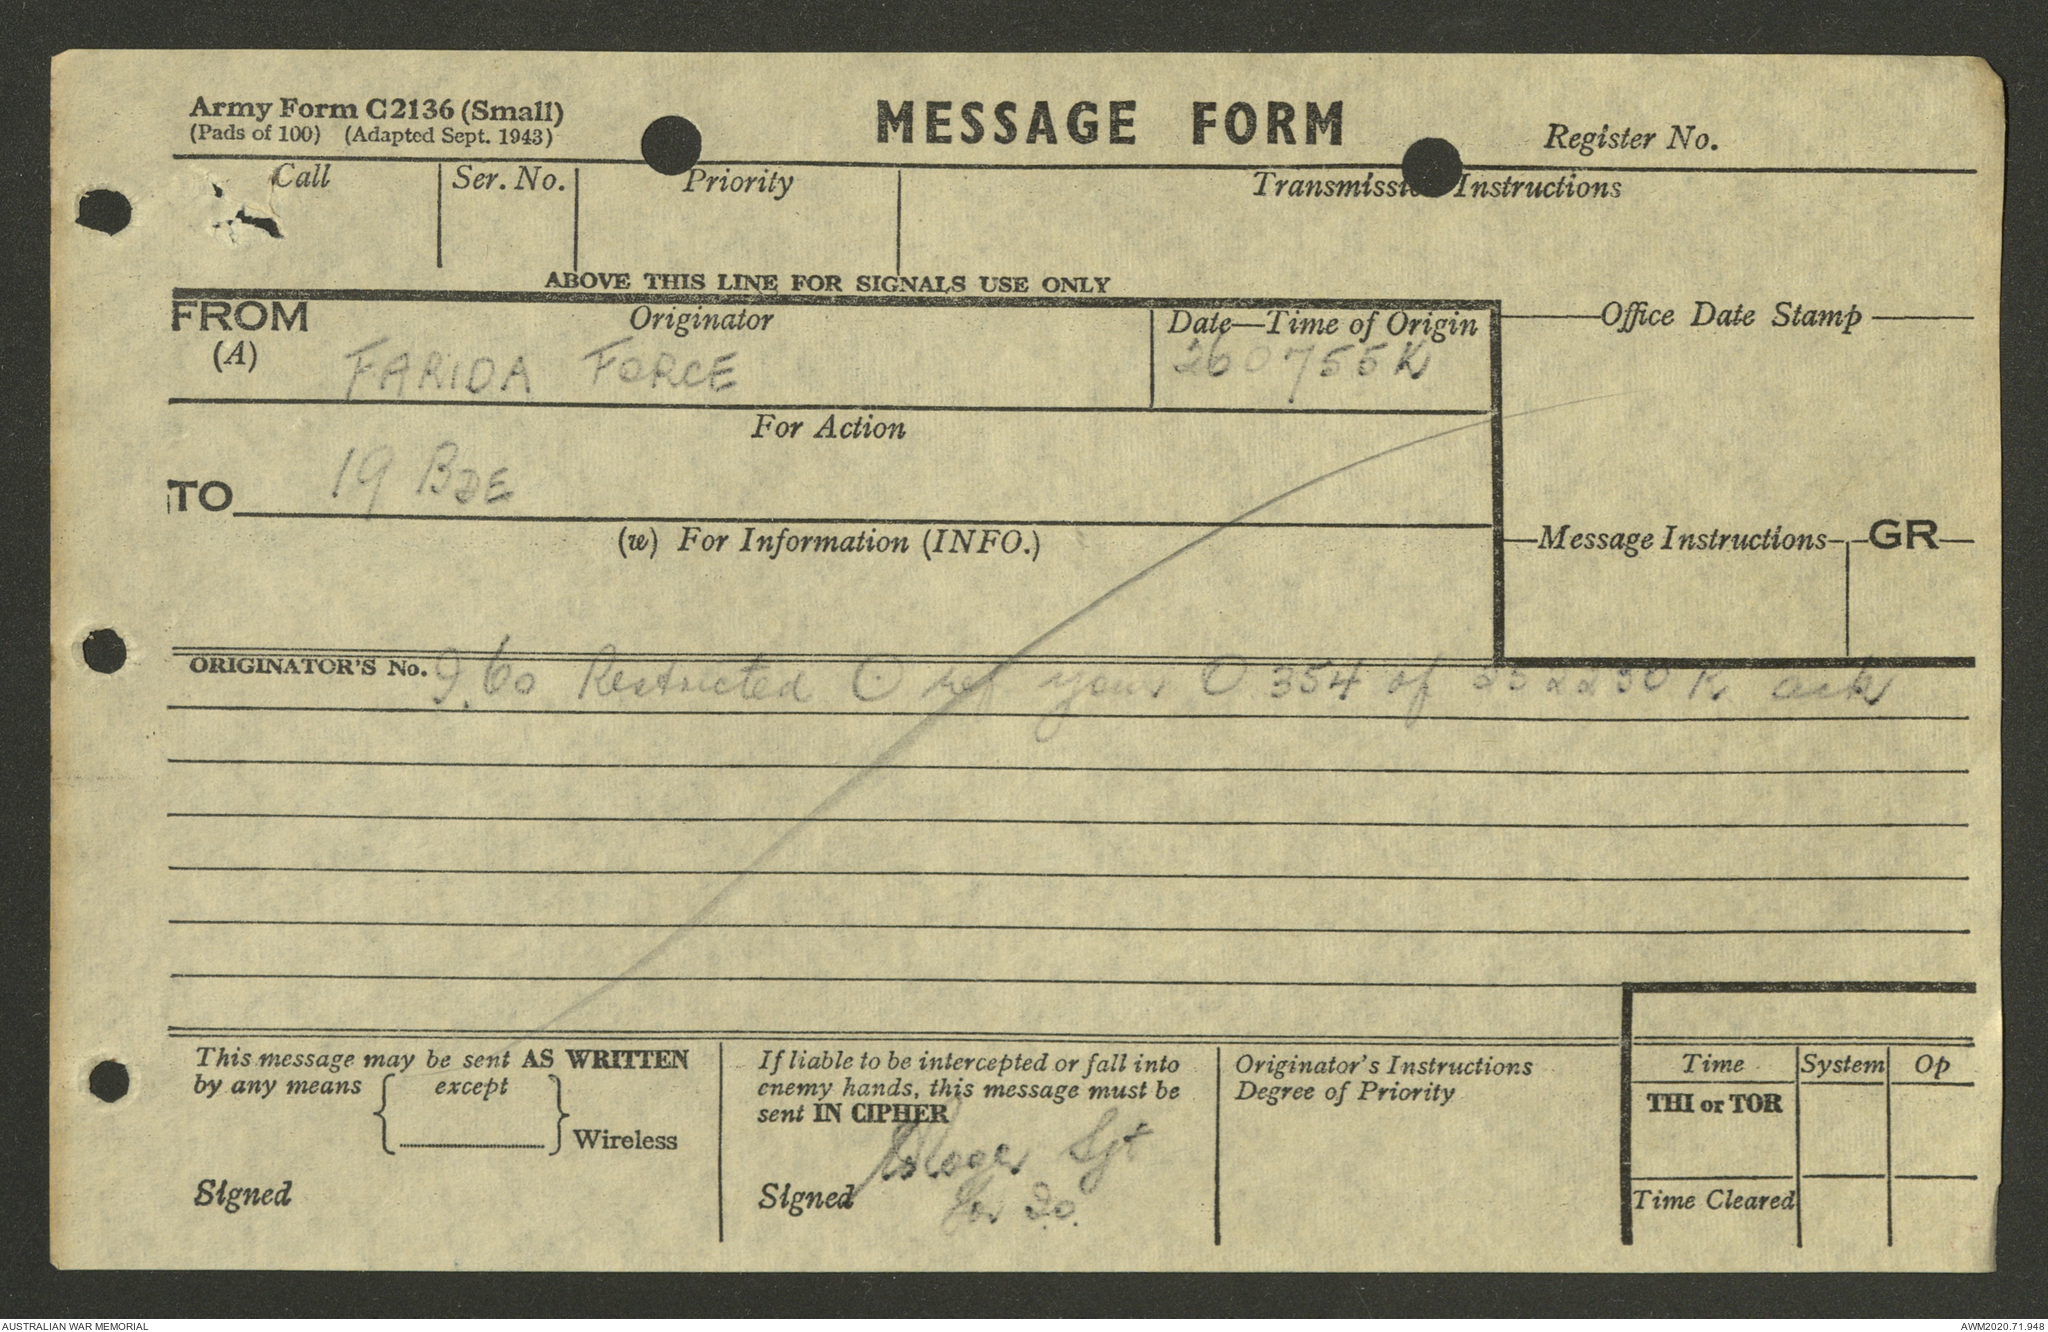 Army Form C2136 (Small)
(Pads of 100) (Adapted Sept. 1943)
MESSAGE FORM
Register No.
Call
Ser. No.
Priority
Transmission Instructions
ABOVE THIS LINE FOR SIGNALS USE ONLY
FROM
(A)
Originator
FARIDA FORCE
Date—Time of Origin
260755K
Office Date Stamp
For Action
TO
19 BDE
(w) For Information (INFO.)
Message Instructions
GR
ORIGINATOR'S No. Restricted ref your O 354 of 252230 K ack
This message may be sent AS WRITTEN
by any means { except } Wireless
Signed
If liable to be intercepted or fall into
enemy hands, this message must be
sent IN CIPHER
Sgt
Signed for
Originator's Instructions
Degree of Priority
Time
System
Op
THI or TOR
Time Cleared
AUSTRALIAN WAR MEMORIAL
AWM2020.71.948